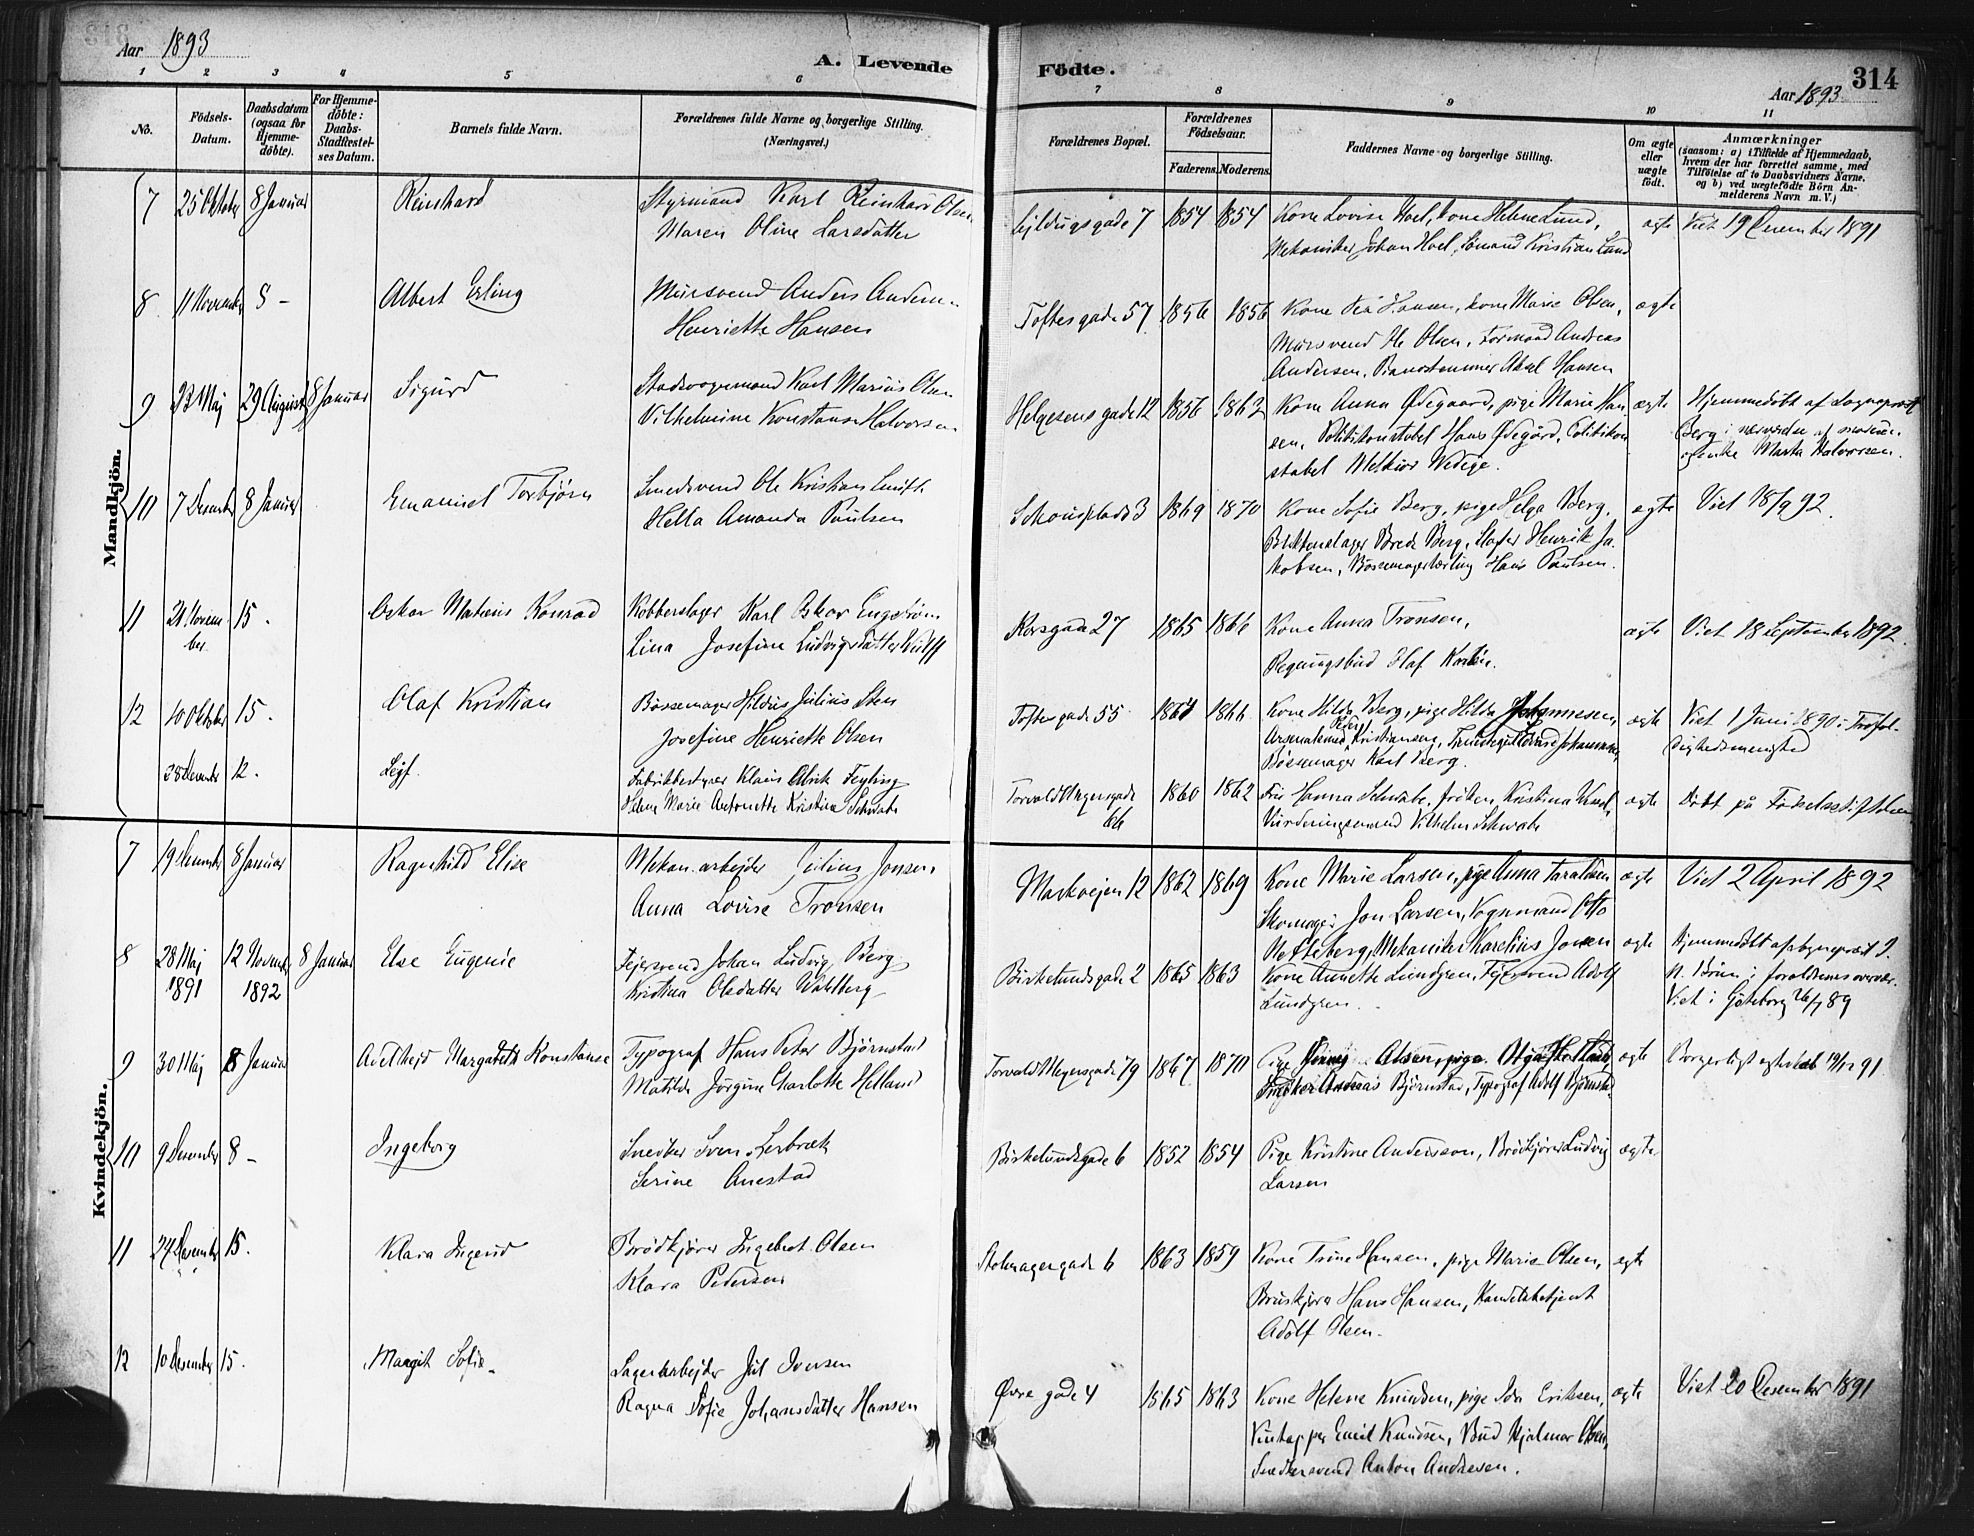 Aar 1893
A. Levende Födte.
314
Aar 1893
1 2 3 4 5 6 7 8 9 10 11
No.
Födsels-Datum.
Daabsdatum (ogsaa for Hjemme-döbte).
For Hjemme-döbte: Daabs-Stadfæstel-ses Datum.
Barnets fulde Navn.
Forældrenes fulde Navne og borgerlige Stilling.
(Næringsvei.)
Forældrenes Bopæl.
Forældrenes Födselsaar.
Faderens. Moderens.
Faddernes Navne og borgerlige Stilling.
Om ægte eller uægte födt.
Anmærkninger
(saasom: a) i Tilfælde af Hjemmedaab, hvem der har forrettet samme, med Tilföielse af to Daabsvidners Navne, og b) ved uægtefödte Börn An-melderens Navn m. V.)
Mandkjön.
7 25 Oktober 8 Januar Reinhard Styrmand Karl Reinhard Olsen
Maren Oline Larsdatter
7 1854 1854 Kone Lovise Hoel, kone Helene Lund,
Mekaniker Johan Hoel, Sømand Kristian Lund
ægte Viet 19 December 1891
8 11 November 8 - Albert Erling Mursvend Anders Andersen
Henriette Hansen
Toftesgade 57 1856 1856 Kone Hansen, kone Marie Olsen,
Mursvend Ole Olsen, Formand Andreas
Andersen, Pianostemmer Hansen
ægte
9 23 Maj 29 August 8 Januar Sigurd Karl Marius Olsen
Vilhelmine Konstanse Halvorsen
Helgesensgade 12 1856 1862 Kone Anna Ødegaard, pige Marie Han
sen, Politikonstabel Hans Ødegård, Politikon
stabel Melkior Wedege.
ægte Hjemmedøbt af Sogneprest
Berg i nærværelse af
enke Marta Halvorsen.
10 7 Desember 8 Januar Emanuel Torbjørn Smedsvend Ole Kristian Smith
Hella Amanda Paulsen
Schousplads 3 1869 1870 Kone Sofie Berg, pige Helga Berg,
Blikkenslager Brede Berg, Henrik Ja
kobsen, Bøssemagerlærling Hans Paulsen.
ægte Viet 18/9 92.
11 21 Novem-
ber 15. Oskar Matæus Konrad Kobberslager Karl Oskar Engstrøm
Lina Josefine Ludvigsdatter Wulff
Korsgade 27 1865 1866 Kone Anna Tronsen,
Regningsbud Olaf
ægte Viet 18 September 1892.
12 10 Oktober 15. Olaf Kristian Bøssemager Hildus Julius Sten
Josefine Henriette Olsen
Toftesgade 55 1864 1866 Kone Hilda Berg, pige Hilda Johannesen,
Bøssemager Karl Berg.
ægte Viet 1 Juni 1890 i Trefol-
dighedsmenighed
28 Desember 12. Leif. Fabrikbestyrer Klaus Ulrik Feyling
Helene Marie Antonette Kristina Schwabe
Torvald Meyersgade
66 1860 1862 Fru Hanna Schwabe, frøken Kristina
Vurderingsmand Vilhelm Schwabe
ægte Døbt på Fødselsstiftelsen
Kvindekjön.
7 19 Desember 8 Januar Ragnhild Elise Mekan. arbejder Julius Jonsen
Anna Lovise Tronsen
Markvejen 12 1862 1869 Kone Marie Larsen, pige Anna Taraldsen
Skomager Jon Larsen, Vognmand Otto
Netteberg, Mekaniker Karelius Jonsen
ægte Viet 2 April 1892
8 28 Maj
1891 12 Novem.
1892 8 Januar Else Eugenie Fejersvend Johan Ludvig Berg
Kristina Olsdatter Wahlberg
Birkelundsgade 2 1865 1863 Kone Annette Lundgren, Fejersvend Adolf
Lundgren.
ægte Hjemmedøbt af sogneprest J.
N. Bruun i forældrenes overvær.
Viet i Göteborg 26/7 89
9 30 Maj 8 Januar Adelhejd Margarete Konstanse Typograf Hans Peter Bjørnstad
Matilde Jørgine Charlotte Helland
Torvald Meyersgade 79 1867 1870 Pige Jenny Olsen, pige Olga
Snedker Andreas Bjørnstad, Typograf Adolf Bjørnstad.
ægte Borgerligt ægteskab 19/12 91
10 9 Desember 8 - Ingeborg Snedker Sven Lerbræk
Serine Anestad
Birkelundsgade 6 1852 1854 Pige Kristine Andersson, Brødkjører Ludvig
Larsen
ægte
11 24 Desember 15. Klara Ingerid Brødkjører Ingebret Olsen
Klara Pedersen
Stolmagergade 6 1863 1859 Kone Trine Hansen, pige Marie Olsen,
Bruskjører Hans Hansen, Handelsbetjent
Adolf Olsen.
ægte
12 10 Desember 15. Margit Sofie Lagerarbejder Jul Iversen
Ragna Sofie Johansdatter Hansen
Øvre gade 4 1865 1863 Kone Helene Knudsen, pige Ida Eriksen,
Vintapper Emil Knudsen, Bud Hjalmar Olsen,
Snedkersvend Anton Andresen.
ægte Viet 20 Desember 1891